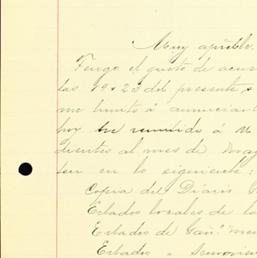 Muy apreble.
Tengo el gusto de acus
las 19 y 23 del presente y
me limito á anunciar
hoy he remitido á M.
dientes al mes de May
ten en lo siguiente:
Copia del Diario G
Estados locales de la
Estados de Gan.º men
Estado